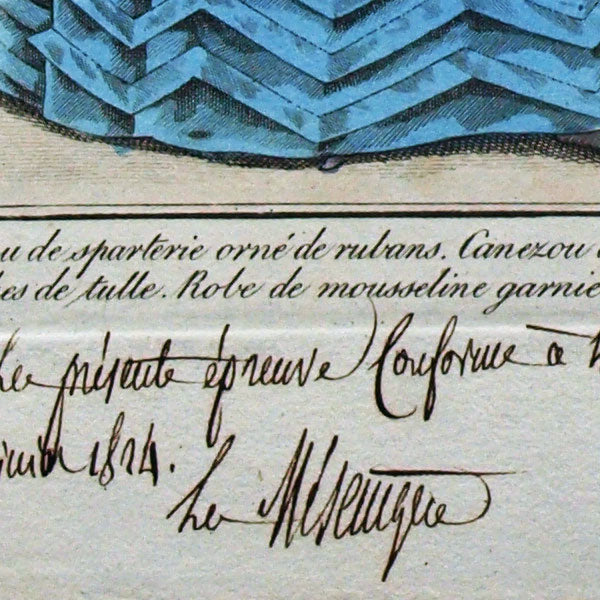 u de sparterie orné de rubans. Canezou
es de tulle. Robe de mousseline garnie
La présente épreuve Conforme à
1824.
La Mésangère